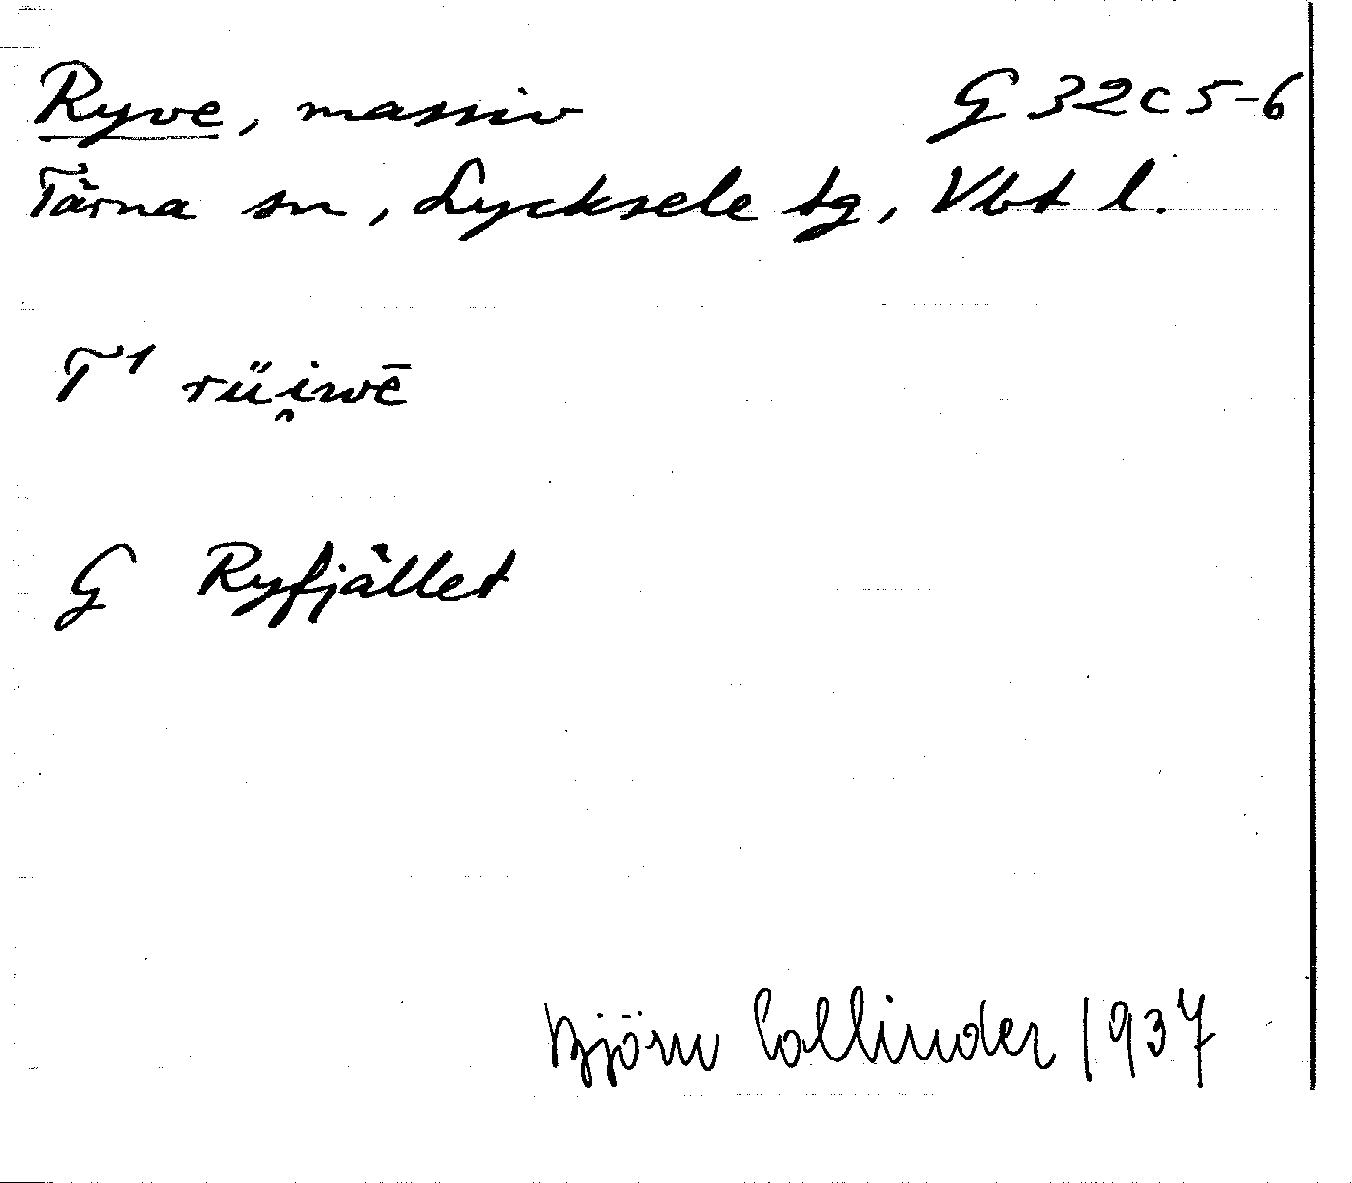 Ryve, massiv G 32c 5-6
Tärna sn, Lycksele tg, Vbt l.
T¹ rüi̯wē
G Ryfjället
Björn Collinder 1937